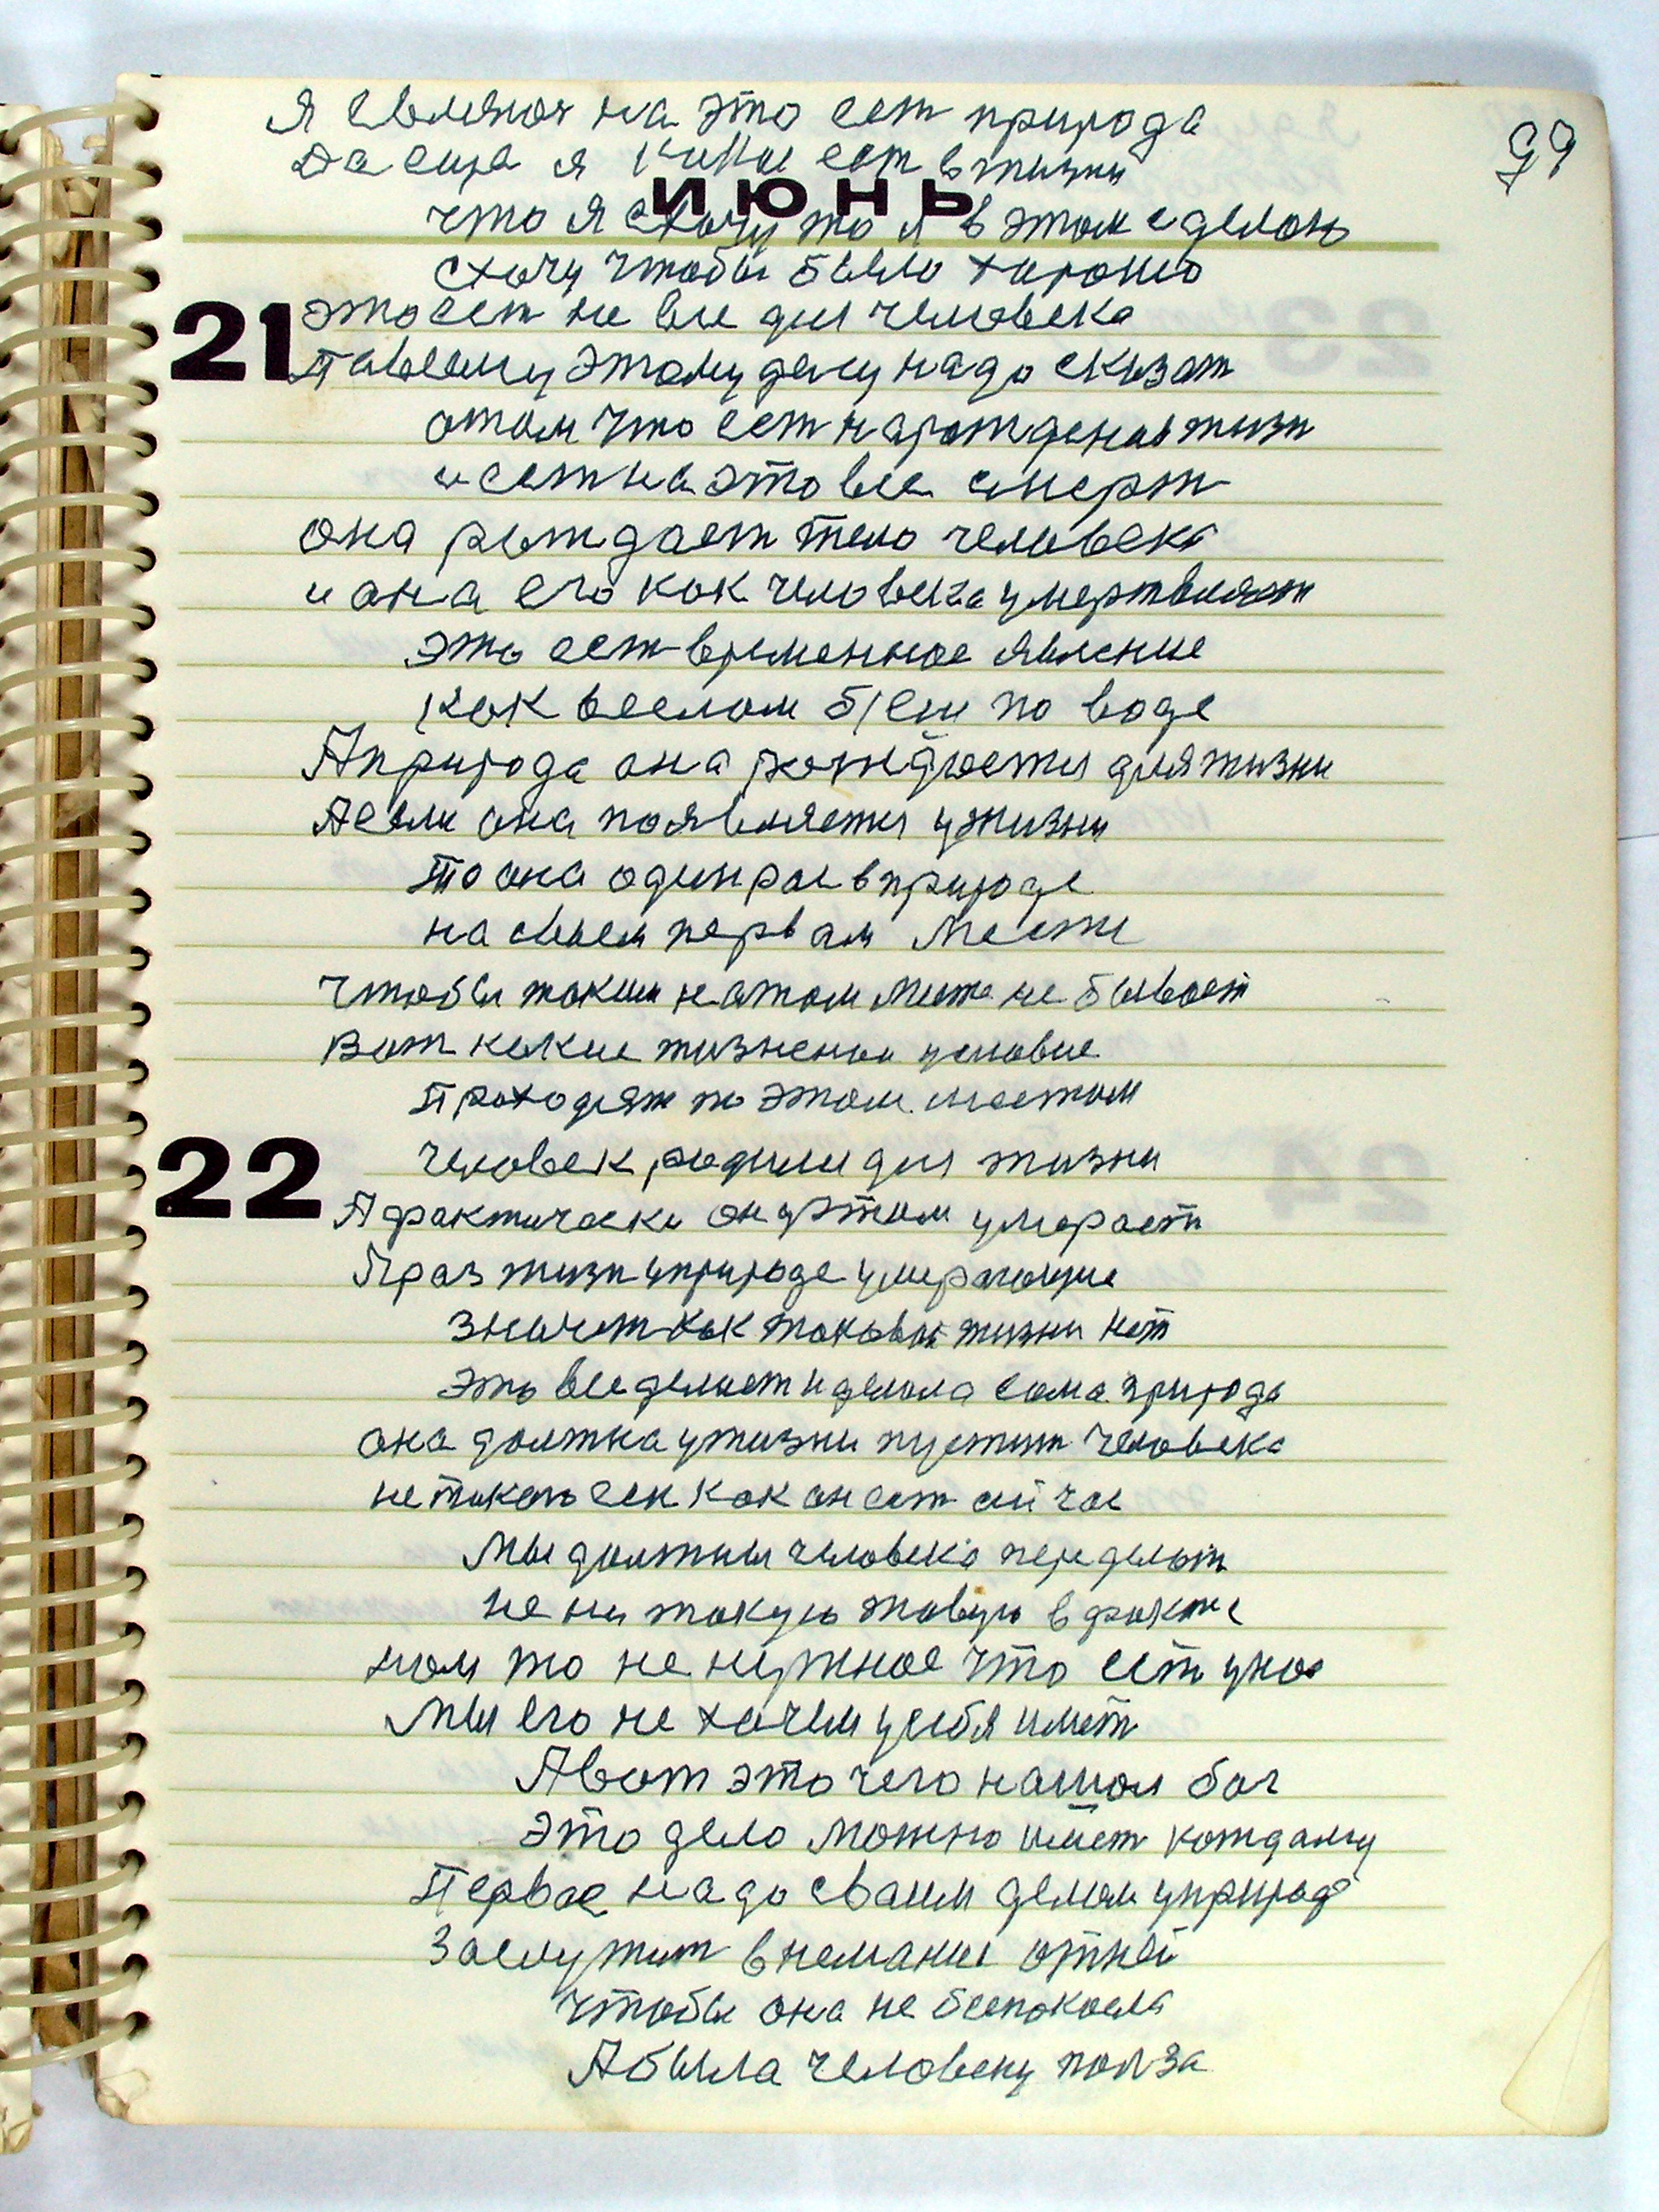 99
Я евляюя на это ест природа
Да еще я ест в жизни
ИЮНЬ
что я схочу то я в этом сделою
схочу чтобы было харошо
21
это ест не все для человека
Павсему этому делу надо сказат
отом что ест нарождения жизн
и ест на это все смерт
она рождает тело человека
и она его как человека умертвляет
это ест временное явление
Как веслом беш по воде
А природа она рождается для жизни
А если она появляется ужизни
То она один рас в природе
на своем первам месте
Чтобы таким на этом месте не бывает
Вот какие жизненаи условие
Проходят по этом местам
22
Человек родили для жизни
А фактически он уэтом умерает
А раз жизн уприроде умерающие
значит как таковая жизни нет
это все делает и делала сама природа
она должна ужизни пустит человека
не таково как он ест сичас
Мы должны человека переделат
не на такую живую в факте
нам то не нужное что ест унас
Мы его не хочем усебя имет
А вот это чего нашол бог
Это дело можно имет каждаму
Первое надо сваим делом уприроде
Заслужит внемание отней
Чтобы она не беспокоела
А была человеку полза